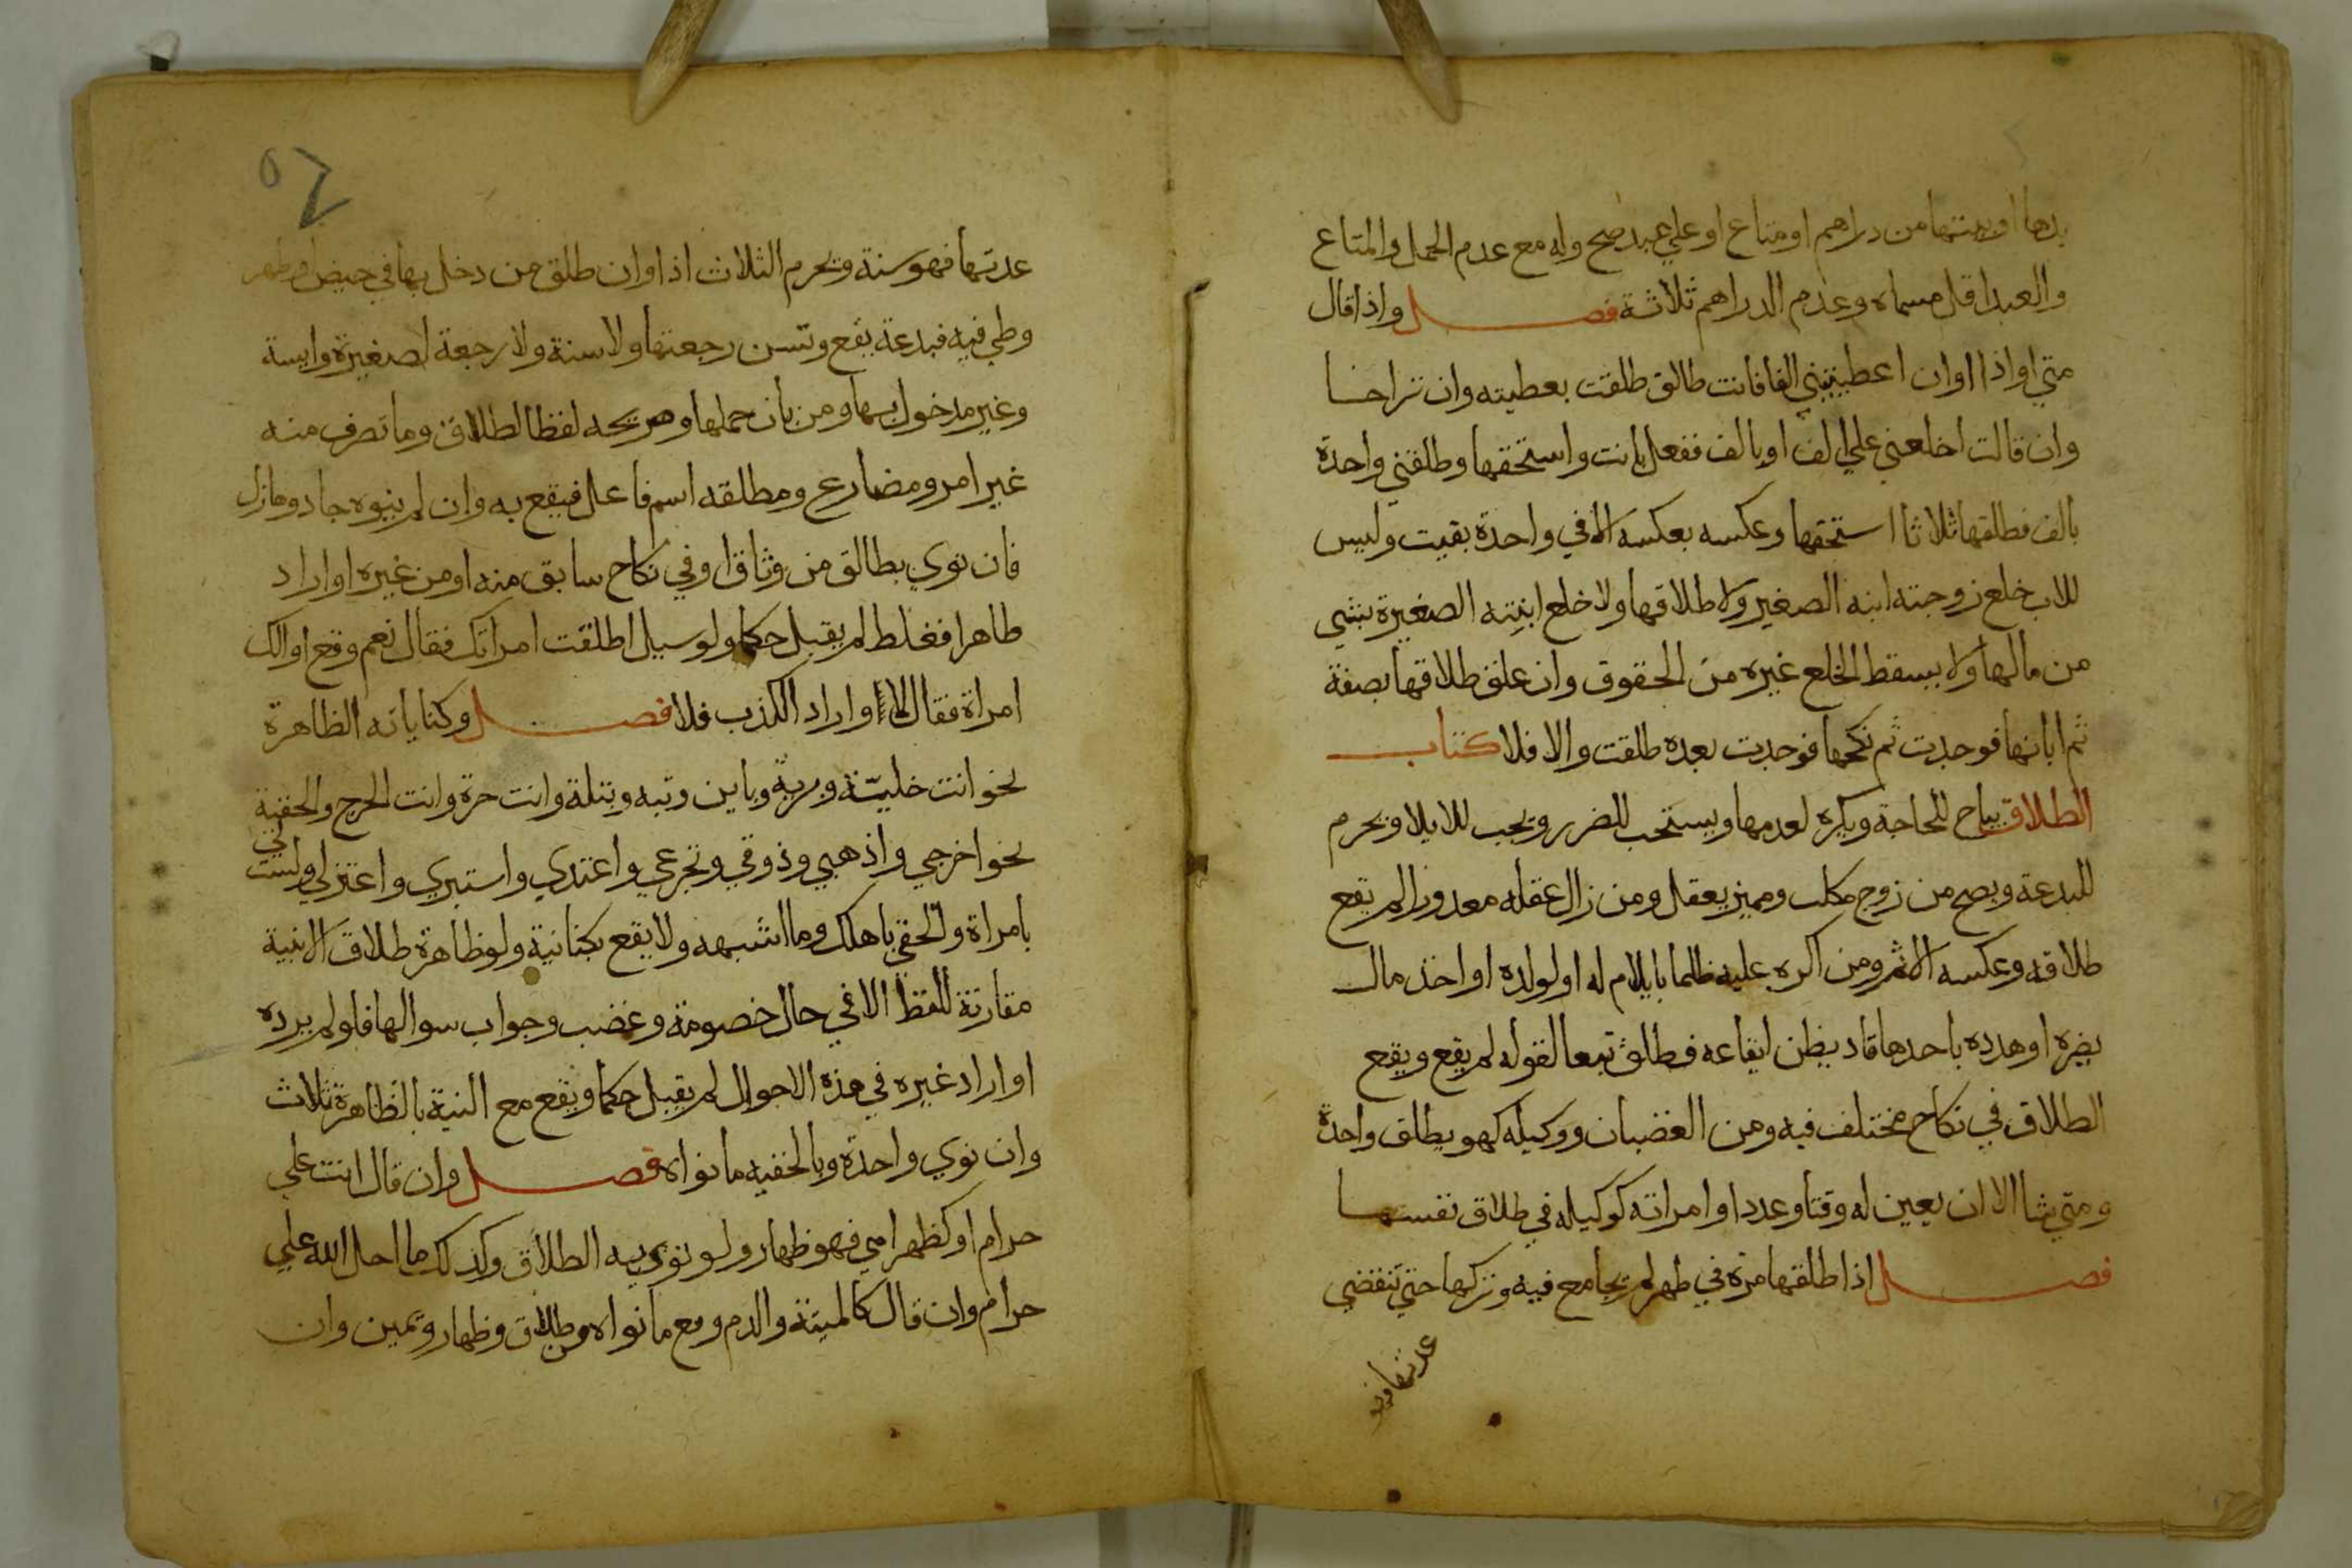 يدها او بيتها من دراهم او متاع او علي عبد صح وله مع عدم الحمل والمتاع
والعبد اقل مسماه وعدم الدراهم ثلاثة فصل واذا قال
متي او اذا او ان اعطيتيني الفا فانت طالق طلقت بعطيته وان تراخا
وان قالت اخلعني علي الف او بالف ففعل بانت واستحقها وطلقني واحدة
بالف فطلقها ثلاثا استحقها وعكسه بعكسه الا في واحدة بقيت وليس
للاب خلع زوجته ابنه الصغير ولا طلاقها ولا خلع ابنته الصغيرة بشي
من مالها ولا يسقط الخلع غيره من الحقوق وان علق طلاقها بصفة
ثم ابانها فوجدت ثم نكحها فوجدت بعده طلقت والا فلا كتاب
الطلاق يباح للحاجة ويكره لعدمها ويستحب للضرر ويجب للايلا ويحرم
للبدعة ويصح من زوج مكلف ومميز يعقل ومن زال عقله معذورا لم يقع
طلاقه وعكسه الاثم ومن اكره عليه ظلما بايلام له او لولده او اخذ مال
يضره او هدده باحدها قادر يظن ايقاعه فطلق تبعا لقوله لم يقع ويقع
الطلاق في نكاح مختلف فيه ومن الغضبان ووكيله كهو يطلق واحدة
ومتي شا الا ان يعين له وقتا وعددا وامراته كوكيله في طلاق نفسها
فصل اذا طلقها مرة في طهر لم يجامع فيه وتركها حتي تنقضي
عدتها فهو
٥٦
عدتها فهو سنة وتحرم الثلاث اذا وان طلق من دخل بها في حيض او طهر
وطي فيه فبدعة يقع وتسن رجعتها ولا سنة ولا رجعة لصغيرة وايسة
وغير مدخول بها ومن بان حملها وصريحه لفظ الطلاق وما تصرف منه
غير امر ومضارع ومطلقه اسم فاعل فيقع به وان لم ينوه جاد وهازل
فان نوي بطالق من وثاق او في نكاح سابق منه او من غيره او اراد
طاهرا فغلط لم يقبل حكما ولو سيل اطلقت امراتك فقال نعم وقع او الك
امراة فقال لا واراد الكذب فلا فصل وكناياته الظاهرة
نحو انت خلية وبرية وباين وتبه وبتلة وانت حرة وانت الحرج والخفية
نحو اخرجي واذهبي وذوقي وتجرعي واعتدي واستبري واعتزلي ولست لي
بامراة والحقي باهلك وما اشبهه ولا يقع بكناية ولو ظاهرة طلاق الا بنية
مقارنة للفظ الا في حال خصومة وغضب وجواب سوالها فلو لم يرده
او اراد غيره في هذه الاحوال لم يقبل حكما ويقع مع النية بالظاهرة ثلاث
وان نوي واحدة وبالخفيه ما نواه فصل وان قال انت علي
حرام او كظهر امي فهو ظهار ولو نوي به الطلاق وكذلك ما احل الله علي
حرام وان قال كالميتة والدم وقع ما نواه من طلاق وظهار ويمين وان